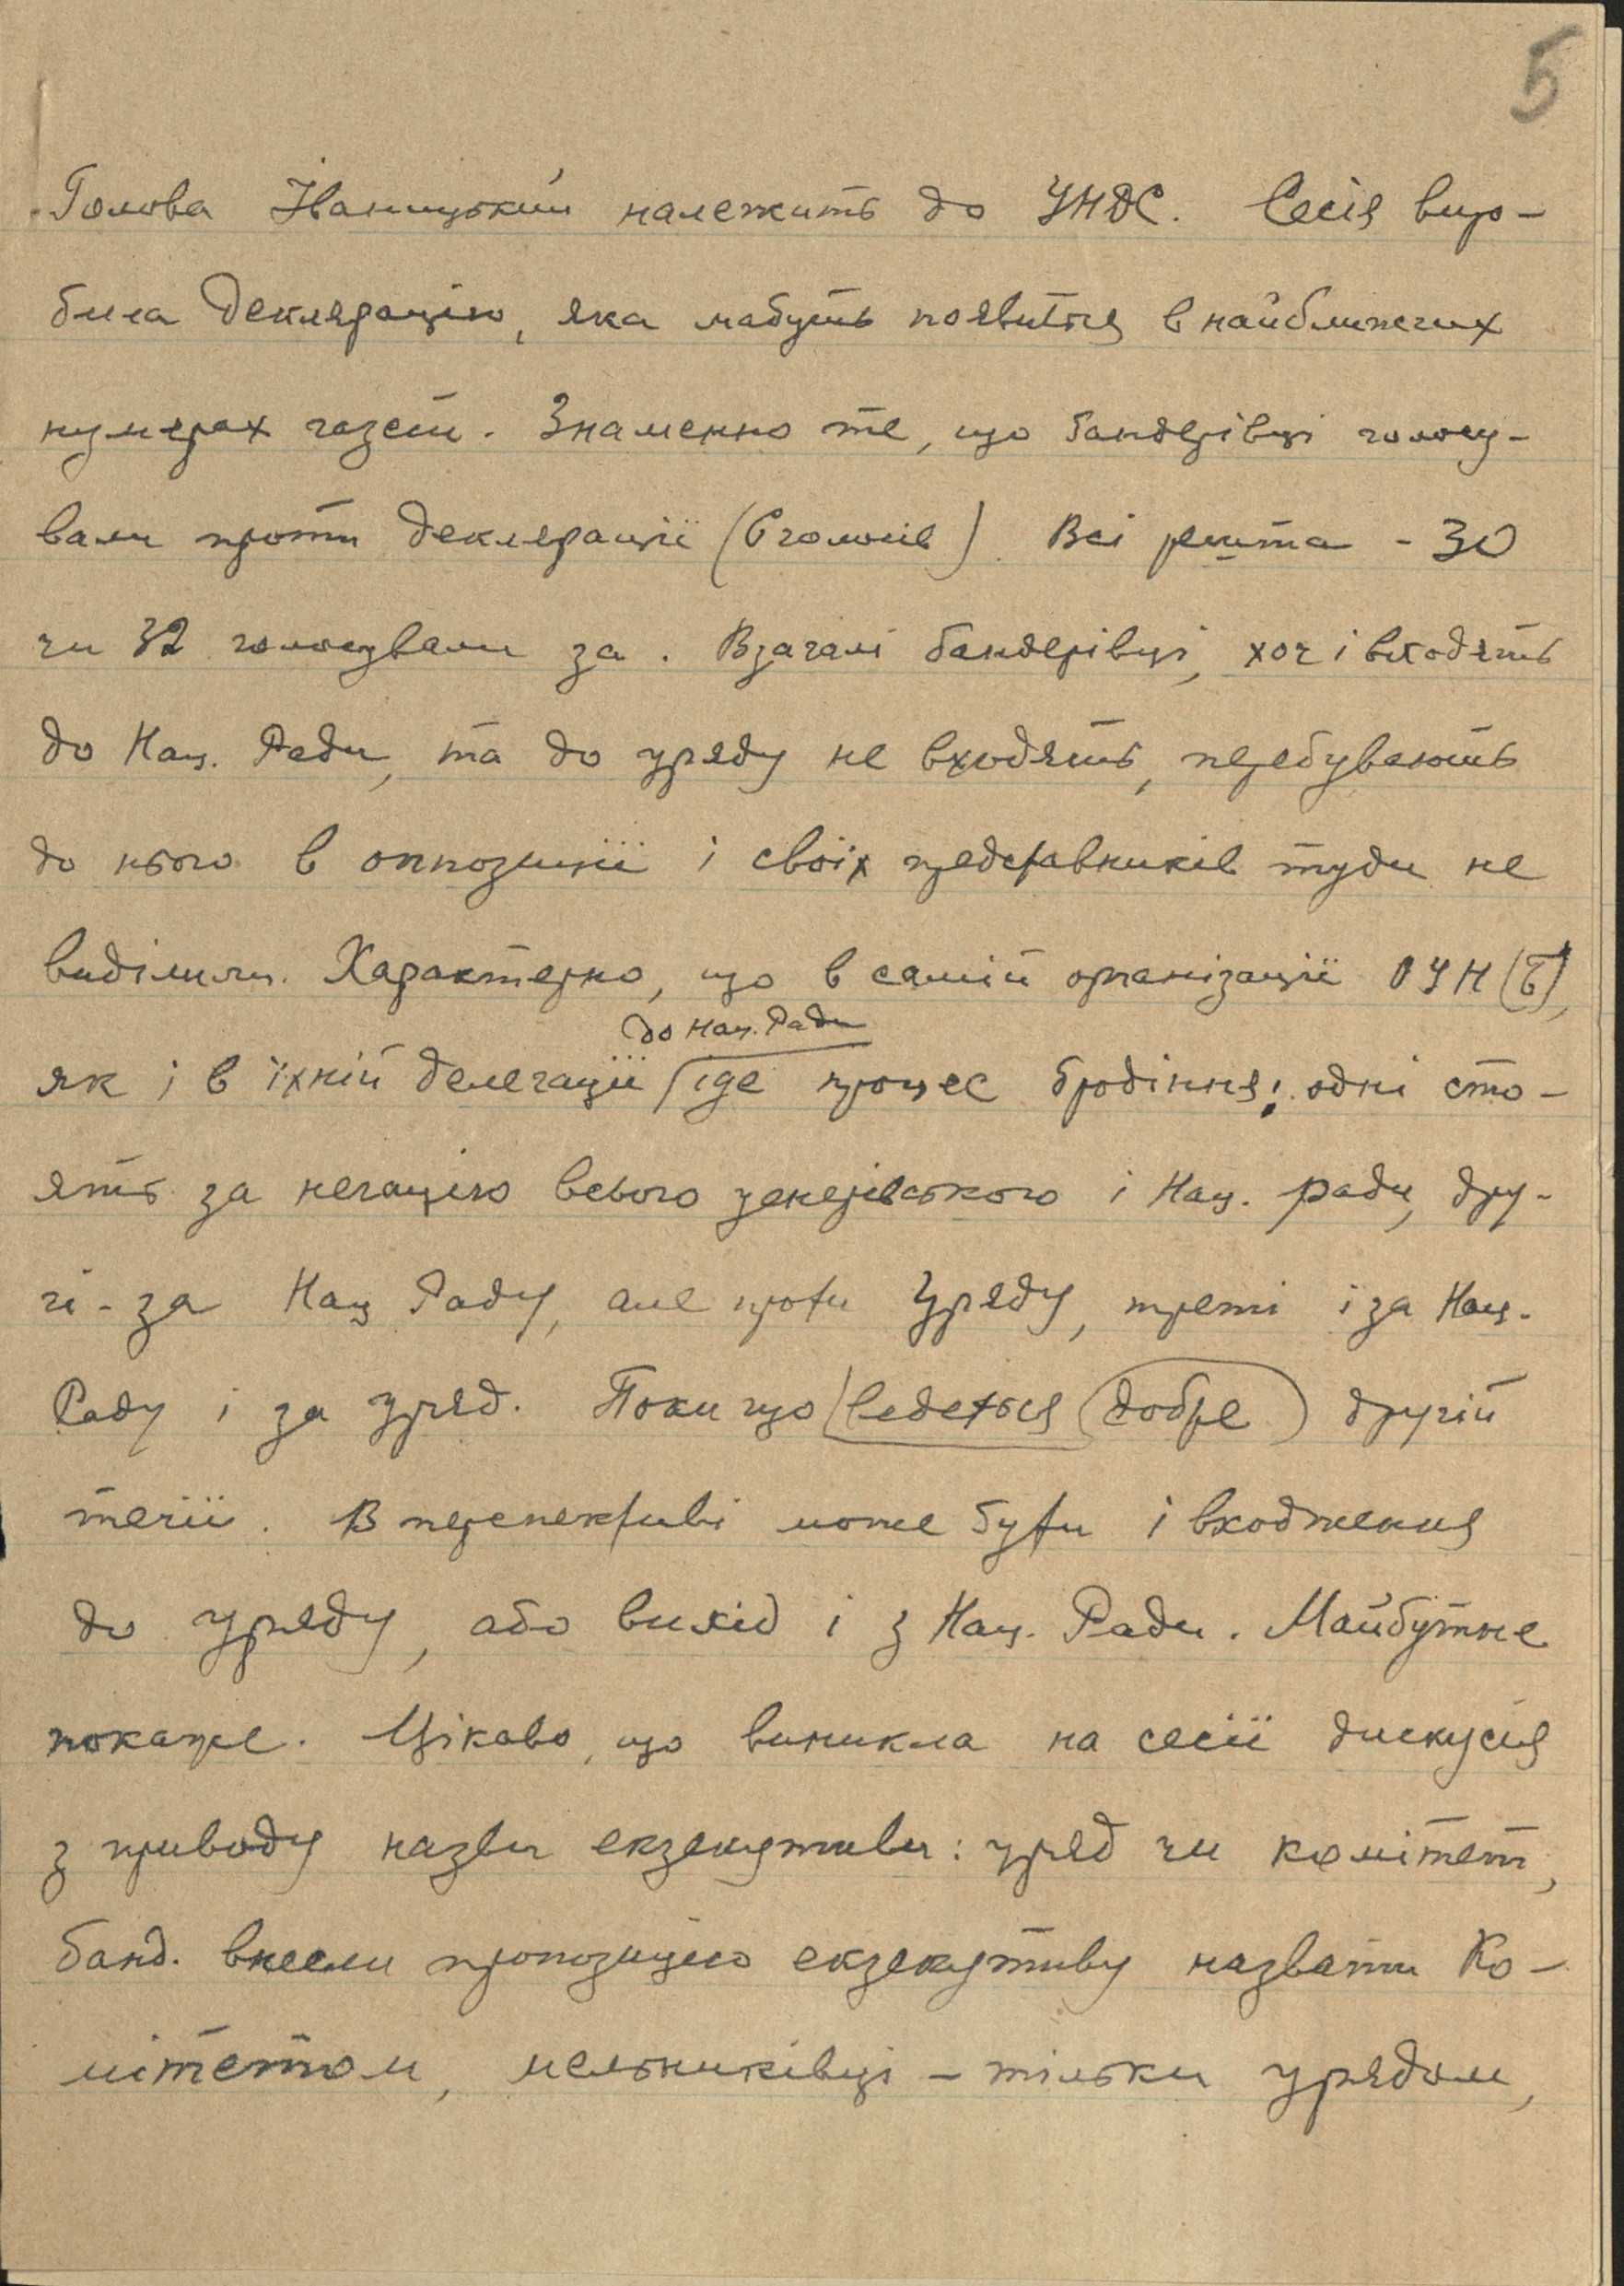 5
Голова Іваницький належить до УНДС. Сесія виро-
била Деклярацію, яка мабуть появиться в найближчих
нумерах газет. Знаменно те, що бандерівці голосу-
вали проти деклярації (6 голосів). Всі решта - 30
чи 32 голосували за. Взагалі бандерівці, хоч і входять
до Нац. Ради, та до уряду не входять, перебувають
до нього в оппозиції і своїх представників туди не
виділили. Характерно, що в самій організації ОУН(б),
до Нац. Ради
як і в їхній делегації іде процес бродіння: одні сто-
ять за негацію всього уенерівського і Нац. ради, дру-
гі - за Нац Раду, але проти Уряду, треті і за Нац.
Раду і за уряд. Поки що ведеться добре другій
течії. В перспективі може бути і входження
до уряду, або вихід і з Нац. Ради. Майбутнє
покаже. Цікаво, що виникла на сесії дискусія
з приводу назви екзекутиви: уряд чи комітет,
банд. внесли пропозицію екзекутиву назвати Ко-
мітетом, мельниківці - тільки урядом,